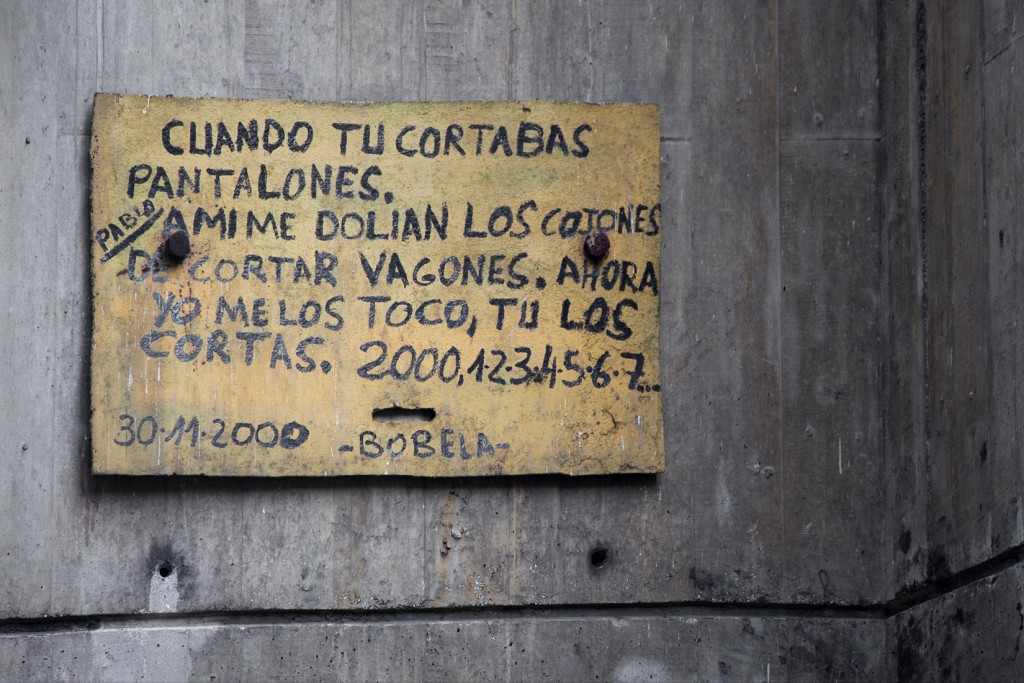 CUANDO TU CORTABAS
PANTALONES.
PABLO
AMI ME DOLIAN LOS COJONES
DE CORTAR VAGONES. AHORA
YO ME LOS TOCO, TU LOS
CORTAS. 2000,1·2·3·4·5·6·7...
30·11·2000
-BOBELA-